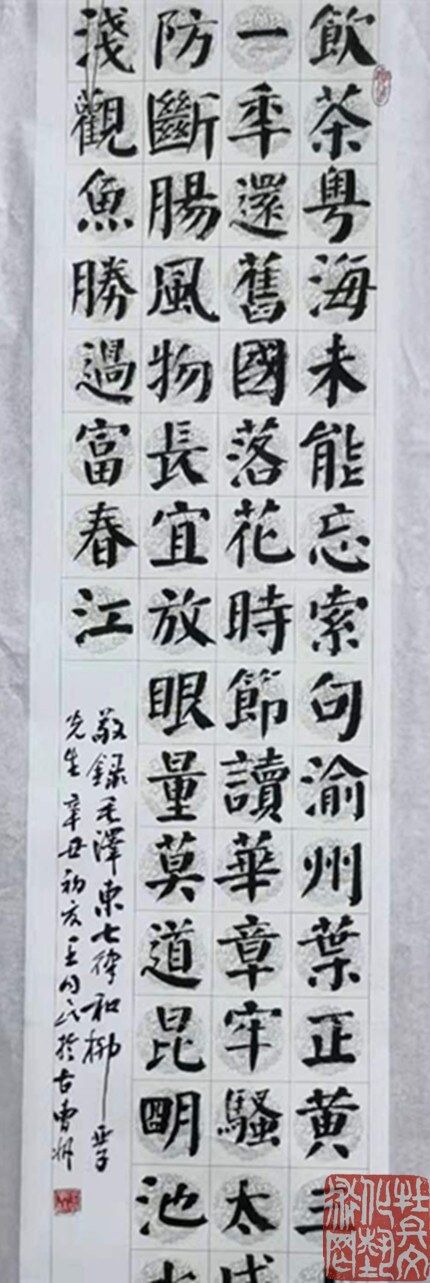 飲茶粤海未能忘索句渝州葉正黄三
一年還舊國落花時節讀華章牢騷太盛
防斷腸風物長宜放眼量莫道昆明池水
淺觀魚勝過富春江
敬錄毛澤東七律和柳亞子
先生辛丑初夏王同民於古曹州
牡丹文